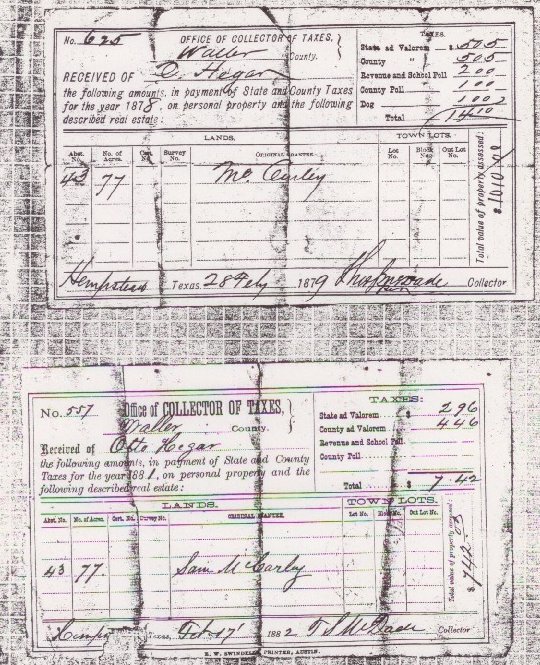 No. 625 OFFICE OF COLLECTOR OF TAXES,
Waller County.
RECEIVED OF O. Hegar
the following amounts, in payment of State and County Taxes
for the year 1878, on personal property and the following
described real estate:
TAXES.
State ad Valorem $ 505
County " 505
Revenue and School Poll 200
County Poll 100
Dog 100
Total 1410
LANDS. TOWN LOTS.
Abst. No. No. of Acres. Cert. No. Survey No. ORIGINAL GRANTEE. Lot No. Block No. Out Lot No.
43 77 Mc Curley
Total value of property assessed: $1010.00
Hempstead Texas 28 Feby 1879 Collector
No. 557 Office of COLLECTOR OF TAXES,
Waller County.
Received of Otto Hegar
the following amounts, in payment of State and County
Taxes for the year 1881, on personal property and the
following described real estate:
TAXES:
State ad Valorem $ 296
County ad Valorem 446
Revenue and School Poll
County Poll
Total $ 7.42
LANDS. TOWN LOTS.
Abst. No. No. of Acres. Cert. No. Survey No. ORIGINAL GRANTEE. Lot No. Block No. Out Lot No.
43 77. Sam McCarley
Total value of property assessed: $ 742
Texas, Feb. 17 1882 T S McDade Collector
E. W. SWINDELLS, PRINTER, AUSTIN.